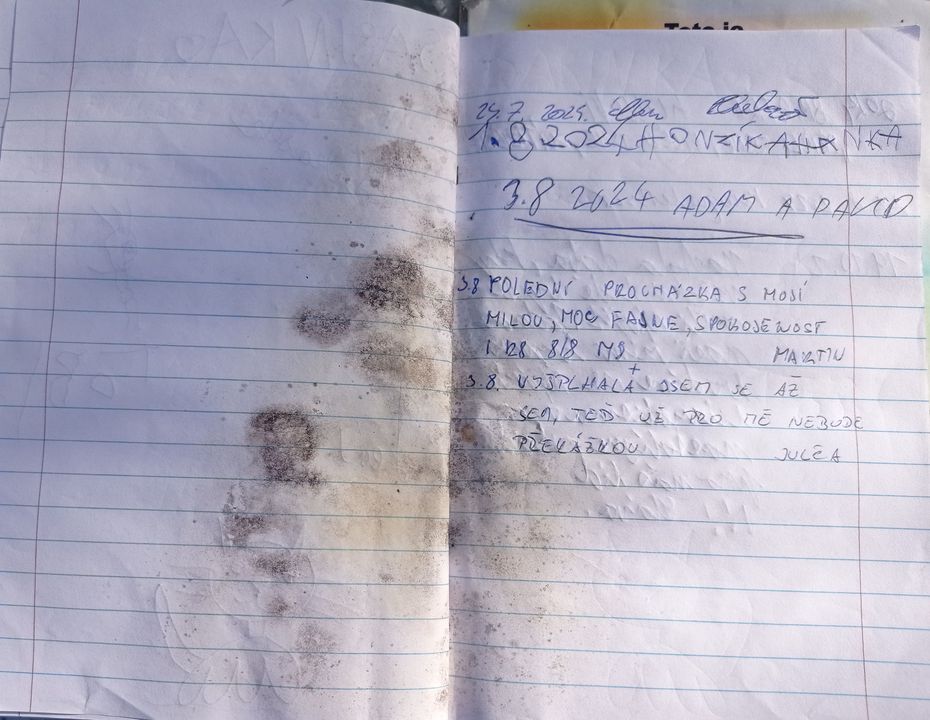 Toto je
24.7. 2024.
1.8 2024 HONZÍK A HANKA
3.8 2024 ADAM A DAVID
3.8 POLEDNÍ PROCHÁZKA S MOJÍ
MILOU, MOC FAJNE, SPOKOJENOST
MARTIN
3.8. VYŠPLHALA JSEM SE AŽ
SEM, TEĎ UŽ PRO MĚ NEBUDE
PŘEKÁŽKOU JULČA